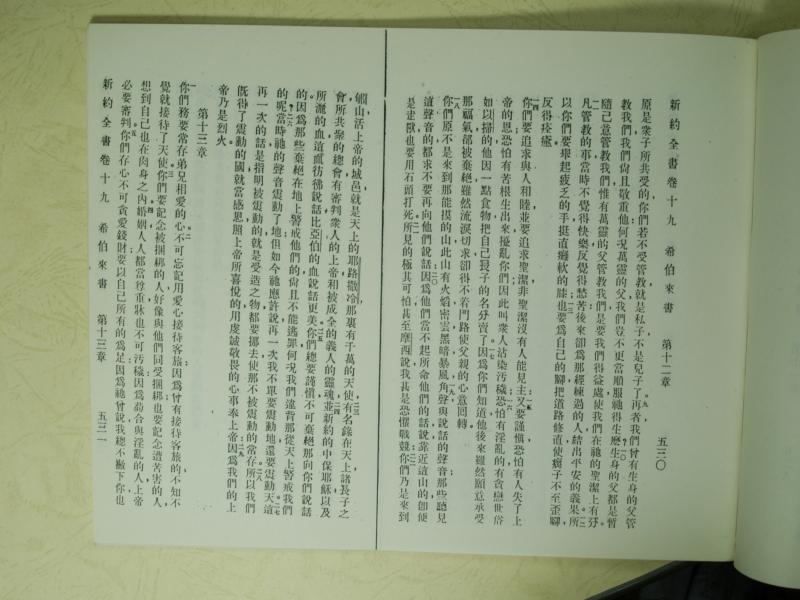 新約全書卷十九 希伯來書 第十二章 五三〇
原是衆子所共受的你們若不受管教就是私子不是兒子了再者我們曾有生身的父管
教我們我們尙且敬重他何况萬靈的父我們豈不更當順服祂得生麽生身的父都是暫
隨己意管教我們惟有萬靈的父管教我們是要我們得益處使我們在祂的聖潔上有分
凡管教的事當時不覺得快樂反覺得愁苦後來卻爲那經練過的人結出平安的義果所
以你們要舉起疲乏的手挺直癱軟的膝也要爲自己的腳把道路修直使瘸子不至歪腳
反得痊癒
你們要追求與人和睦並要追求聖潔非聖潔沒有人能見主又要謹愼恐怕有人失了上
帝的恩恐怕有苦根生出來擾亂你們因此叫衆人沾染汚穢恐怕有淫亂的有貪戀世俗
如以掃的他因一點食物把自己長子的名分賣了因爲你們知道他後來雖然願意承受
那福氣都被棄絕雖然流淚切求卻得不着門路使父親的心意回轉
你們原不是來到那能摸的山此山有火焰密雲黑暗暴風角聲與說話的聲音那些聽見
這聲音的都求不要再向他們說話因爲他們當不起所命他們的話說靠近這山的卽便
是走獸也要用石頭打死所見的極其可怕甚至摩西說我甚是恐懼戰兢你們乃是來到
郇山活上帝的城邑就是天上的耶路撒冷那裏有千萬的天使有名錄在天上諸長子之
會所共聚的總會有審判衆人的上帝和被成全的義人的靈魂並新約的中保耶穌以及
所灑的血這血彷彿說話比亞伯的血說話更美你們總要謹愼不可棄絕那向你們說話
的因爲那些棄絕在地上警戒他們的尙且不能逃罪何况我們違背那從天上警戒我們
的呢當時祂的聲音震動了地但如今祂應許說再一次我不單要震動地還要震動天這
再一次的話是指明被震動的就是受造之物都要挪去使那不被震動的常存所以我們
旣得了震動的國就當感恩照上帝所喜悅的用虔誠敬畏的心事奉上帝因爲我們的上
帝乃是烈火
第十三章
你們務要常存弟兄相愛的心不可忘記用愛心接待客旅因爲曾有接待客旅的不知不
覺就接待了天使你們要記念被捆綁的人好像與他們同受捆綁也要記念遭苦害的人
想到自己也在肉身之內婚姻人人都當尊重牀也不可汚穢因爲苟合與淫亂的人上帝
必要審判你們存心不可貪愛錢財要以自己所有的爲足因爲祂曾說我總不撇下你也
新約全書卷十九 希伯來書 第十三章 五三一